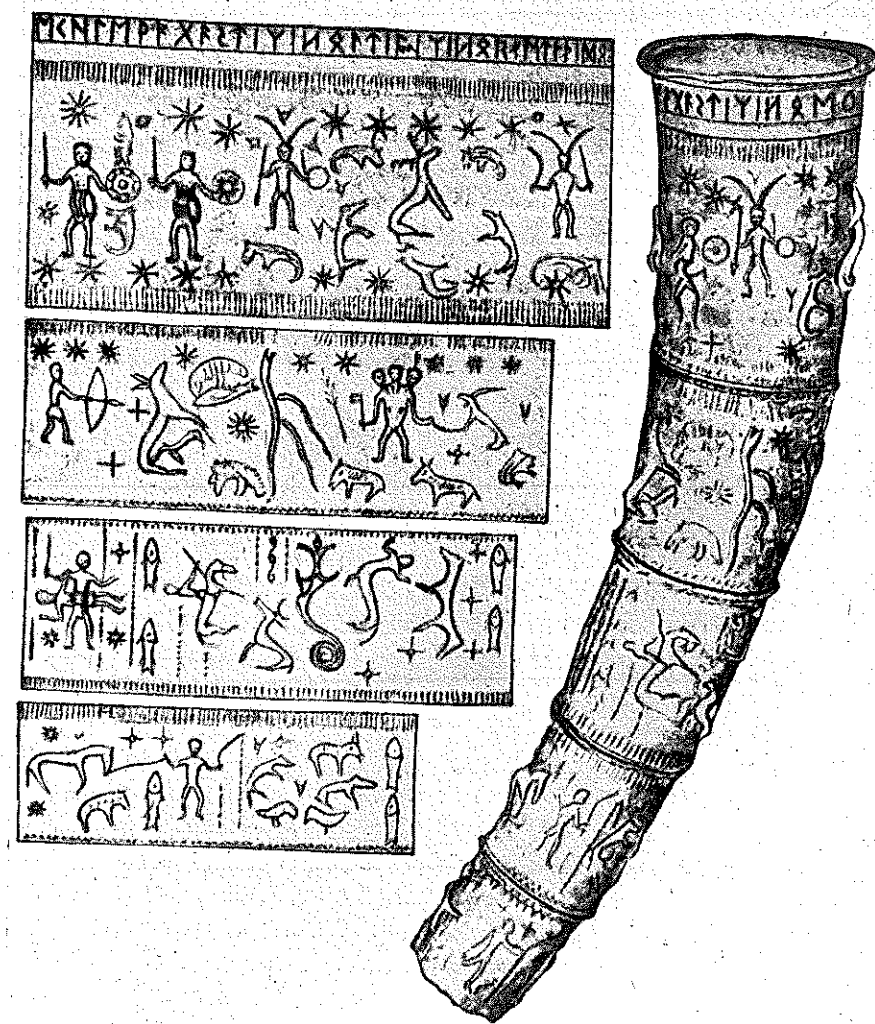 ᛖᚲᚺᛚᛖᚹᚨᚷᚨᛊᛏᛁᛉ᛬ᚺᛟᛚᛏᛁᛃᚨᛉ᛬ᚺᛟᚱᚾᚨ᛬ᛏᚨᚹᛁᛞᛟ᛬
ᚷᚨᛊᛏᛁᛉ᛬ᚺᛟ